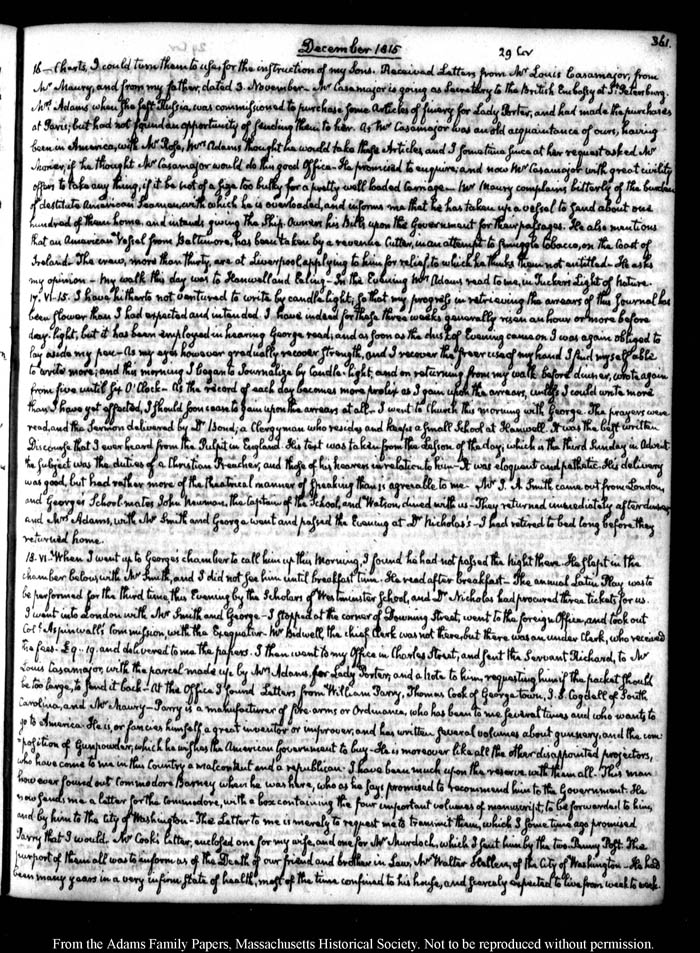 December 1815
29 Cov
361.
16 — Charts, I could turn them to use, for the instruction of my Sons. Received Letters from Mr Louis Casamajor, from
Mr Maury, and from my father, dated 3. November — Mr Casamajor is going as Secretary to the British Embassy at St Petersburg.
Mrs Adams when she left Russia was commissioned to purchase some Articles of finery for Lady Porter, and had made the purchases
at Paris; but had not found an opportunity of sending them to her. As Mr Casamajor was an old acquaintance of ours, having
been in America, with Mr Rose, Mrs Adams thought he would take these Articles, and I sometime since at her request asked Mr
Morier, if he thought Mr Casamajor would do this good Office — He promised to enquire; and now Mr Casamajor with great civility
offers to take any thing, if it be not of a size too bulky for a pretty well loaded carriage — Mr Maury complains bitterly of the burden
of destitute American Seamen, with which he is overloaded, and informs me that he has taken up a vessel to send about one
hundred of them home, and intends giving the Ship-Owners his Bills upon the Government for their passages. He also mentions
that an American Vessel from Baltimore, has been taken by a revenue Cutter, in an attempt to smuggle tobacco, on the Coast of
Ireland — The crew, more than thirty, are at Liverpool, applying to him for relief, to which he thinks them not entitled — He asks
my opinion — My walk this day was to Hanwell and Ealing — In the Evening Mrs Adams read to me, in Tucker's Light of Nature.
17. VI-15. I have hitherto not ventured to write by candle light, so that my progress in retrieving the arrears of this Journal has
been slower than I had expected and intended. I have indeed for these three weeks generally risen an hour or more before
day-light, but it has been employed in hearing George read; and as soon as the dusk of Evening came on I was again obliged to
lay aside my pen — As my eyes however gradually recover strength, and I recover the free use of my hand I find myself able
to write more; and this morning I began to Journalize by Candle-light; and on returning from my walk before dinner, wrote again
from five until six O'Clock — As the record of each day becomes more prolix as I gain upon the arrears, unless I could write more
than I have yet effected, I should soon cease to gain upon the arrears at all — I went to Church this morning with George. The prayers were
read, and the Sermon delivered by Dr Bond, a Clergyman who resides and keeps a small School at Hanwell. It was the best written
Discourse that I ever heard from the Pulpit in England. His text was taken from the Lesson of the day, which is the third Sunday in Advent
the Subject was the duties of a Christian Preacher, and those of his hearers in relation to him — It was eloquent and pathetic. His delivery
was good, but had rather more of the theatrical manner of speaking than is agreeable to me — Mr J. A. Smith came out from London,
and George's School-mates John Newman, the Captain of the School, and Watson, dined with us — They returned immediately after dinner
and Mrs Adams, with Mr Smith and George went and passed the Evening at Dr Nicholas's — I had retired to bed long before they
returned home.
18. VI. When I went up to George's chamber to call him up this Morning, I found he had not passed the Night there. He slept in the
chamber below, with Mr Smith, and I did not see him until breakfast time — He read after breakfast — The annual Latin Play was to
be performed for the third time this Evening by the Scholars of Westminster School, and Dr Nicholas had procured three tickets for us.
I went into London with Mr Smith and George — I stopped at the corner of Downing Street, went to the foreign Office, and took out
Col. Aspinwall's Commission, with the Exequatur — Mr Bidwell, the chief Clerk was not there, but there was an under Clerk, who received
the fees — and delivered to me the papers. I then went to my Office in Charles Street, and sent the Servant Richard, to Mr
Louis Casamajor, with the parcel made up by Mrs Adams, for Lady Porter, and a Note to him, requesting him, if the packet should
be too large, to send it back — At the Office I found Letters from William Parry, Thomas Cook of George-town, J. S. Cogdell of South
Carolina, and Mr Maury — Parry is a manufacturer of fire-arms or Ordnance, who has been to me several times and who wants to
go to America. He is, or fancies himself a great inventor or improver, and has written several volumes about gunnery, and the com-
position of Gunpowder, which he wishes the American Government to buy — He is moreover like all the other disappointed projectors,
who have come to me in this Country a malcontent and a republican — I have been much upon the reserve with them all — This man
however found out Commodore Barney when he was here, who as he says promised to recommend him to the Government. He
now sends me a letter for the Commodore, with a box containing the four important volumes of manuscript, to be forwarded to him,
and by him to the City of Washington — The Letter to me is merely to request me to transmit them, which I some time ago promised
Parry that I would. Mr Cook's letter, enclosed one for my wife, and one for Mr Murdoch, which I sent him by the two-Penny Post. The
purport of them all was to inform us of the Death of our friend and brother in Law, Mr Walter Hellen, of the City of Washington — He had
been many years in a very infirm state of health, most of the time confined to his house, and scarcely expected to live from week to week.
From the Adams Family Papers, Massachusetts Historical Society. Not to be reproduced without permission.